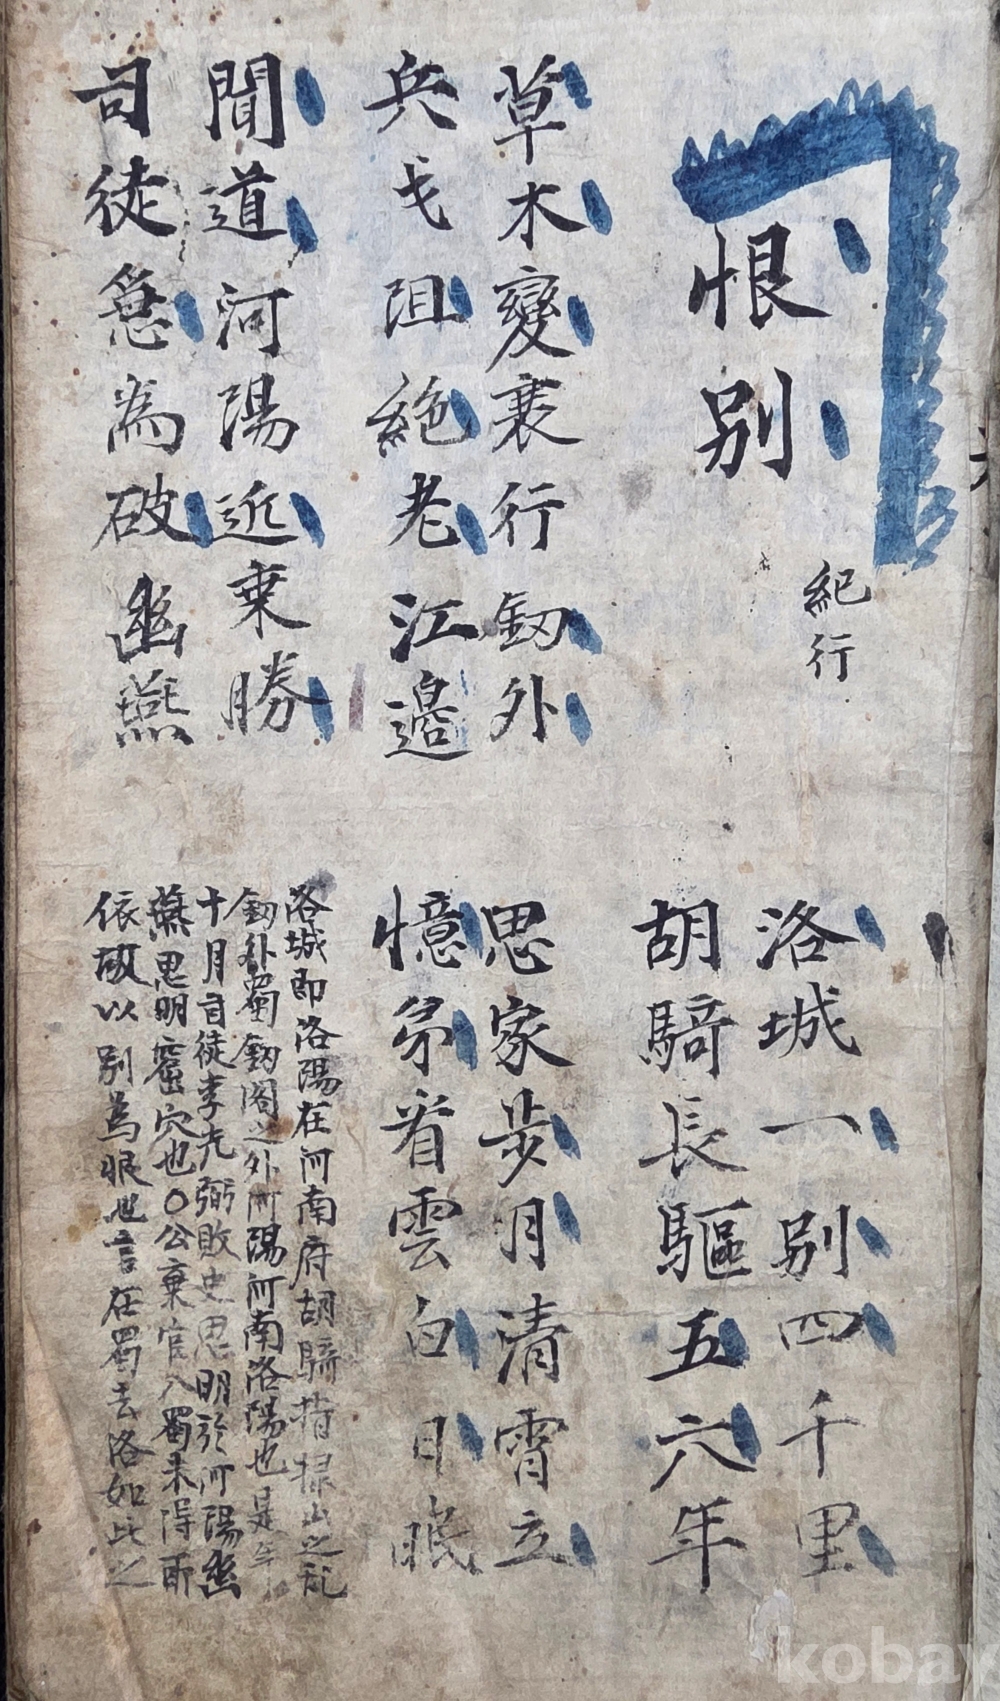 恨別
紀行
洛城一別四千里
胡騎長驅五六年
草木變衰行釼外
兵戈阻絶老江邊
思家步月清霄立
憶弟看雲白日眠
聞道河陽近乗勝
司徒急為破幽燕
洛城即洛陽在河南府胡騎指祿山之乱
釼外蜀釼閣之外河陽河南洛陽也是年
十月司徒李光弼敗史思明於河陽幽
燕思明窟穴也〇公棄官入蜀未得所
依故以別為恨也言在蜀去洛如此之
kobay